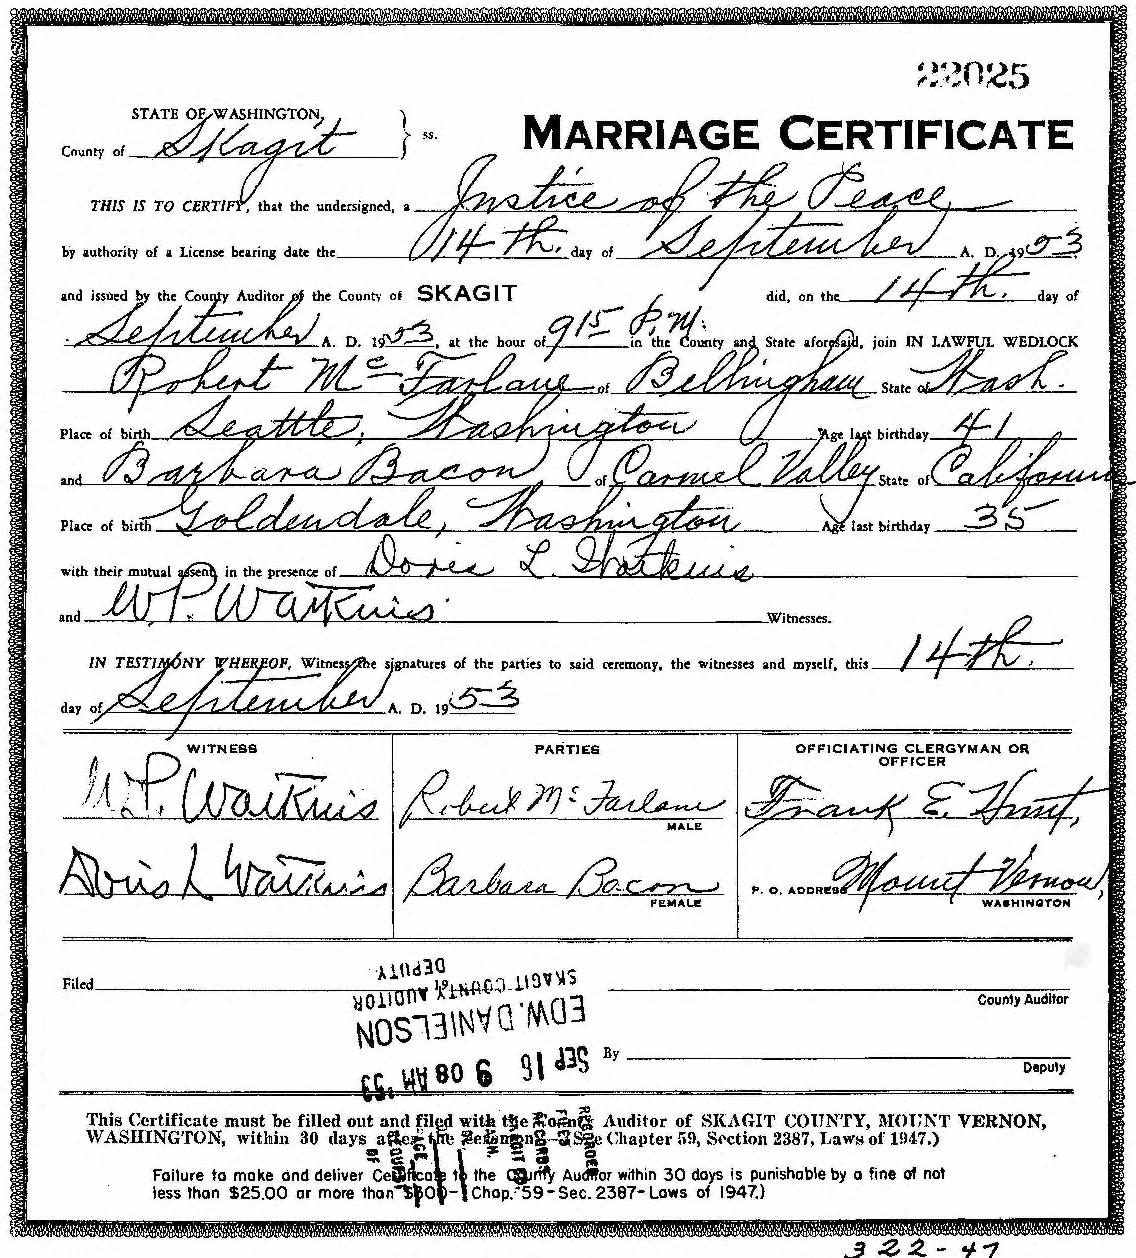 22025
STATE OF WASHINGTON,
County of Skagit } ss.
MARRIAGE CERTIFICATE
THIS IS TO CERTIFY, that the undersigned, a Justice of the Peace
by authority of a License bearing date the 14th. day of September A. D. 1953
and issued by the County Auditor of the County of SKAGIT did, on the 14th. day of
September A. D. 1953, at the hour of 9 15 P.M. in the County and State aforesaid, join IN LAWFUL WEDLOCK
Robert Mc Farlane of Bellingham State of Wash.
Place of birth Seattle, Washington Age last birthday 41
and Barbara Bacon of Carmel Valley State of California
Place of birth Goldendale, Washington Age last birthday 35
with their mutual assent, in the presence of Doris L. Watkins
and W.P. Watkins Witnesses.
IN TESTIMONY WHEREOF, Witness the signatures of the parties to said ceremony, the witnesses and myself, this 14th.
day of September A. D. 1953
WITNESS PARTIES OFFICIATING CLERGYMAN OR
OFFICER
W.P. Watkins Robert Mc Farlane Frank E. Hunt,
MALE
Doris L Watkins Barbara Bacon P. O. ADDRESS Mount Vernon,
FEMALE WASHINGTON
Filed
County Auditor
By
Deputy
SEP 16 9 08 AM '53
EDW. DANIELSON
SKAGIT COUNTY AUDITOR
DEPUTY
This Certificate must be filled out and filed with the County Auditor of SKAGIT COUNTY, MOUNT VERNON,
WASHINGTON, within 30 days after the ceremony—(See Chapter 59, Section 2387, Laws of 1947.)
Failure to make and deliver Certificate to the County Auditor within 30 days is punishable by a fine of not
less than $25.00 or more than $300-(Chap. 59-Sec. 2387-Laws of 1947.)
RECORDED
RECORDS
REQUEST
OF
322-47